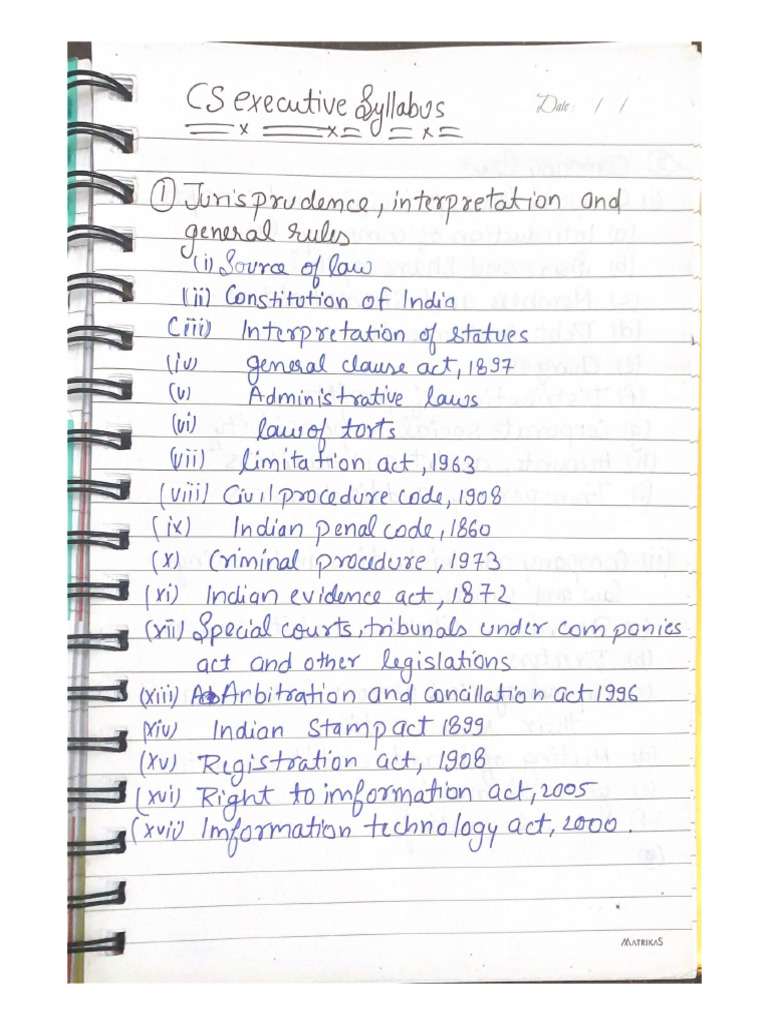 CS executive Syllabus
Date: / /
① Jurisprudence, interpretation and
general rules
(i) Source of law
(ii) Constitution of India
(iii) Interpretation of statues
(iv) general clause act, 1897
(v) Administrative laws
(vi) law of torts
(vii) limitation act, 1963
(viii) Civil procedure code, 1908
(ix) Indian penal code, 1860
(x) Criminal procedure, 1973
(xi) Indian evidence act, 1872
(xii) Special courts, tribunals under companies
act and other legislations
(xiii) Arbitration and concillation act 1996
(xiv) Indian stamp act 1899
(xv) Registration act, 1908
(xvi) Right to imformation act, 2005
(xvii) Imformation technology act, 2000.
MATRIKAS